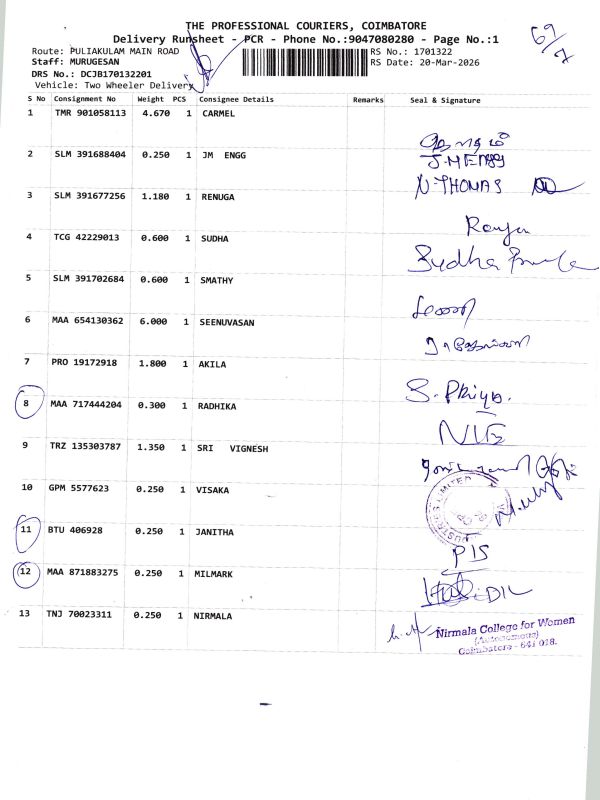 THE PROFESSIONAL COURIERS, COIMBATORE
Delivery Runsheet - PCR - Phone No.:9047080280 - Page No.:1
69/7
Route: PULIAKULAM MAIN ROAD RS No.: 1701322
Staff: MURUGESAN RS Date: 20-Mar-2026
DRS No.: DCJB170132201
Vehicle: Two Wheeler Delivery
S No Consignment No Weight PCS Consignee Details Remarks Seal & Signature
1 TMR 901058113 4.670 1 CARMEL
2 SLM 391688404 0.250 1 JM ENGG J.M ENGG
3 SLM 391677256 1.180 1 RENUGA N.THOMAS
4 TCG 42229013 0.600 1 SUDHA Sudha
5 SLM 391702684 0.600 1 SMATHY
6 MAA 654130362 6.000 1 SEENUVASAN
7 PRO 19172918 1.800 1 AKILA S. Priya.
8 MAA 717444204 0.300 1 RADHIKA
9 TRZ 135303787 1.350 1 SRI VIGNESH
10 GPM 5577623 0.250 1 VISAKA LIMITED
11 BTU 406928 0.250 1 JANITHA PIS
12 MAA 871883275 0.250 1 MILMARK
13 TNJ 70023311 0.250 1 NIRMALA Nirmala College for Women
(Autonomous)
Coimbatore - 641 018.